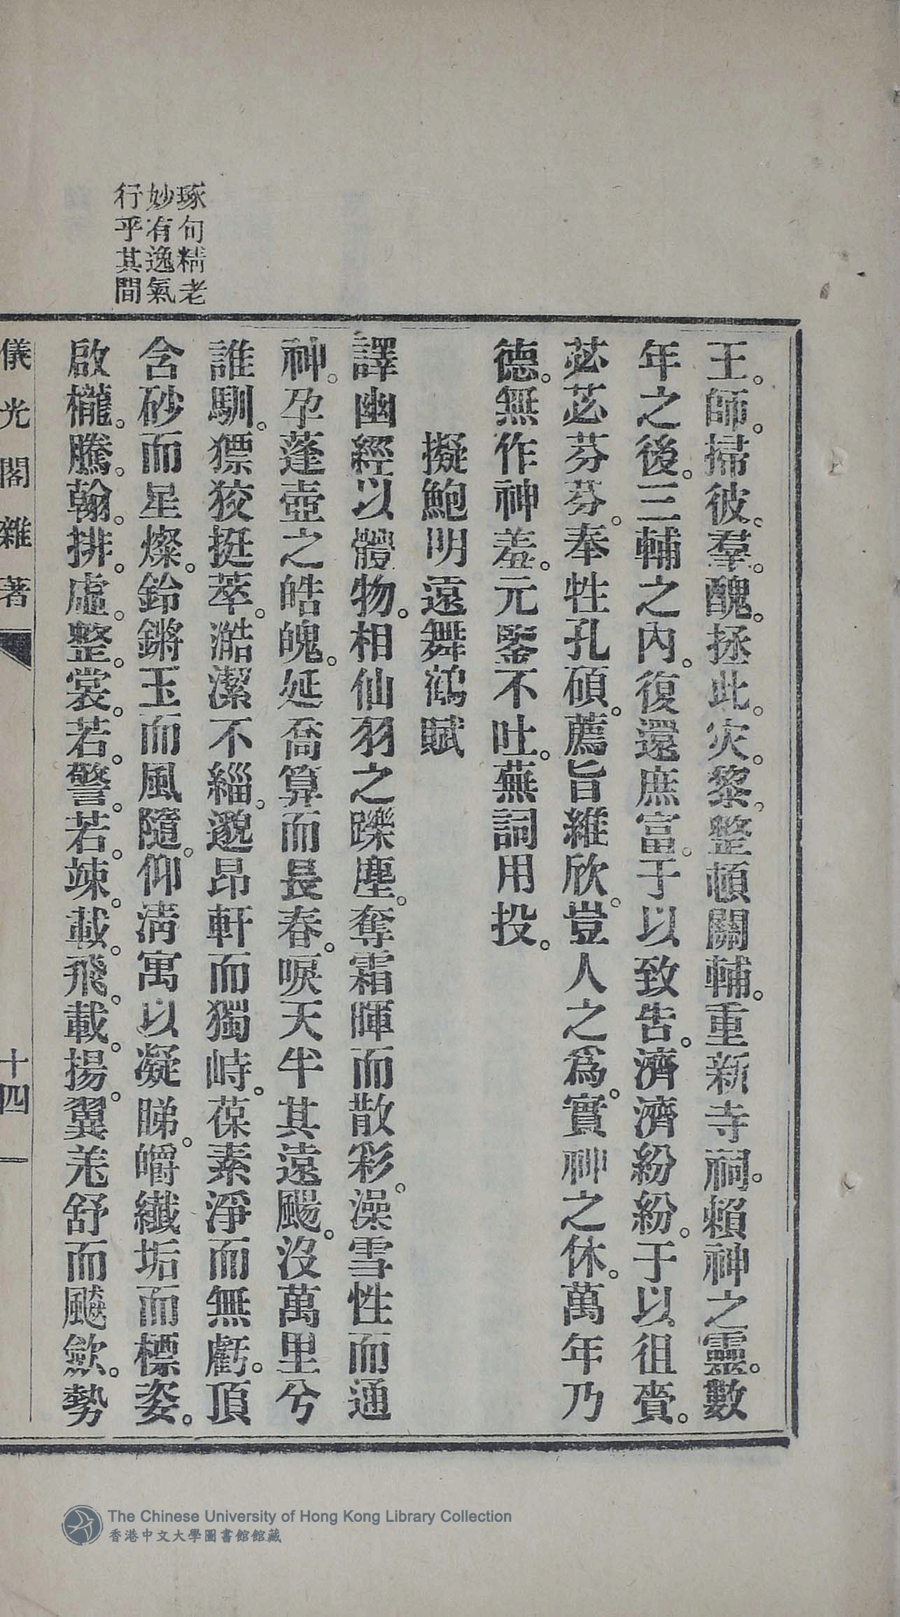 琢句精老
妙有逸氣
行乎其間
王師。掃彼羣醜。拯此灾黎。整頓關輔。重新寺祠。賴神之靈。數
年之後。三輔之內。復還庶富。于以致告。濟濟紛紛。于以徂賚。
苾苾芬芬。奉牲孔碩。薦旨維欣。豈人之爲。實神之休。萬年乃
德。無作神羞。元鑒不吐。蕪詞用投。
擬鮑明遠舞鶴賦
譯幽經以體物。相仙羽之躒塵。奪霜暉而散彩。澡雪性而通
神。孕蓬壺之皓魄。延喬算而長春。唳天半其遠颺。沒萬里兮
誰馴。獧狡挺萃。澔潔不緇。邈昂軒而獨峙。葆素淨而無虧。頂
含砂而星燦。鈴鏘玉而風隨。仰淸寓以凝睇。皭纖垢而標姿。
啟櫳。騰翰。排虛。整裳。若警。若竦。載飛。載揚。翼羌舒而颷歛。勢
儀光閣雜著
十四
The Chinese University of Hong Kong Library Collection
香港中文大學圖書館館藏